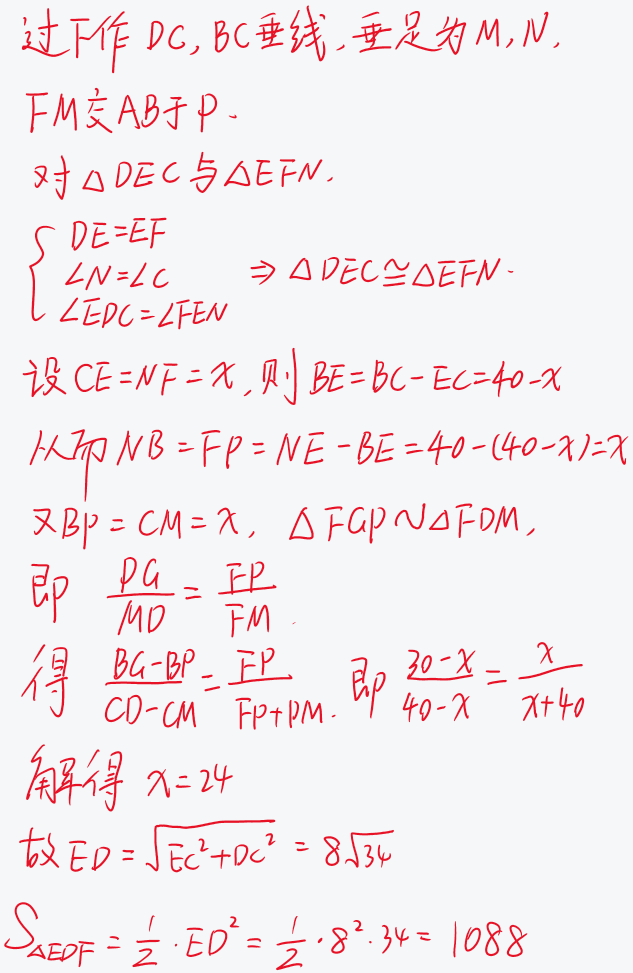 过F作DC,BC垂线,垂足为M,N.
FM交AB于P.
对△DEC与△EFN.
{ DE=EF
∠N=∠C ⇒ △DEC≌△EFN.
∠EDC=∠FEN
设CE=NF=x,则BE=BC-EC=40-x
从而NB=FP=NE-BE=40-(40-x)=x
又BP=CM=x, △FGP∽△FDM,
即 PG/MD = FP/FM.
得 (BG-BP)/(CD-CM) = FP/(FP+PM). 即 (30-x)/(40-x) = x/(x+40)
解得 x=24
故ED=√(EC²+DC²) = 8√34
S△EDF = 1/2·ED² = 1/2·8²·34 = 1088